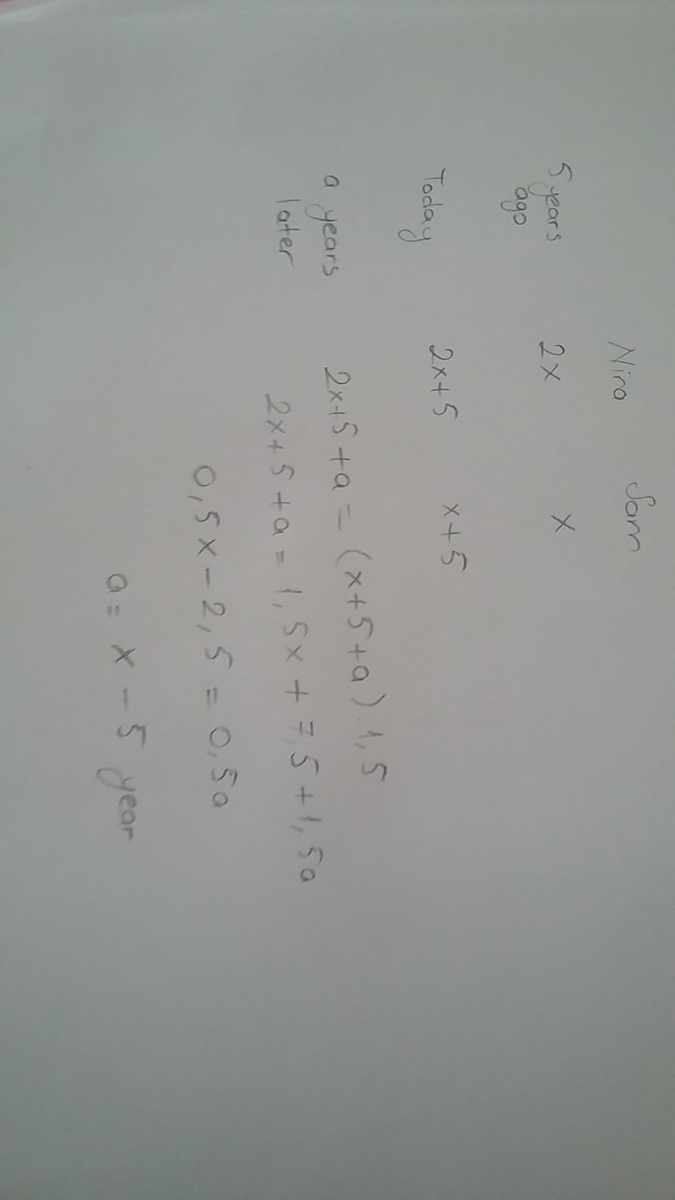 Nina Sam
5 years ago 2x x
Today 2x+5 x+5
a years later 2x+5+a = (x+5+a).1,5
2x+5+a = 1,5x+7,5+1,5a
0,5x-2,5 = 0,5a
a= x-5 year